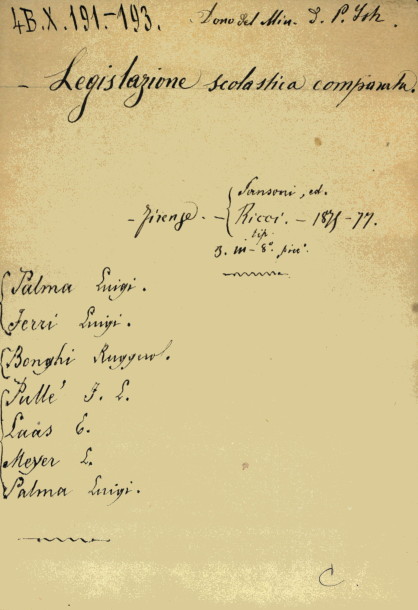 4B.X.191.-193. Dono del Min. d. P. Istr.
- Legislazione scolastica comparata.
Sansoni, ed.
- Firenze. - Ricci. - 1875-77.
tip.
3. in-8°. picc.
Palma Luigi.
Ferri Luigi.
Bonghi Ruggero.
Pullé F. L.
Laas E.
Meyer L.
Palma Luigi.
C.